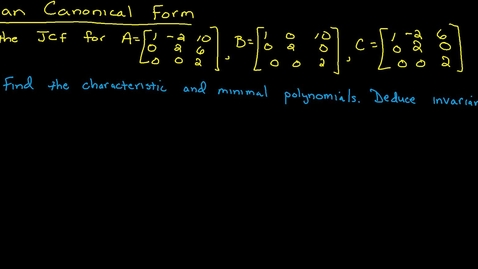 an Canonical Form
the JCf for A=[1 -2 10; 0 2 6; 0 0 2], B=[1 0 10; 0 2 0; 0 0 2], C=[1 -2 6; 0 2 0; 0 0 2]
Find the characteristic and minimal polynomials. Deduce invarian